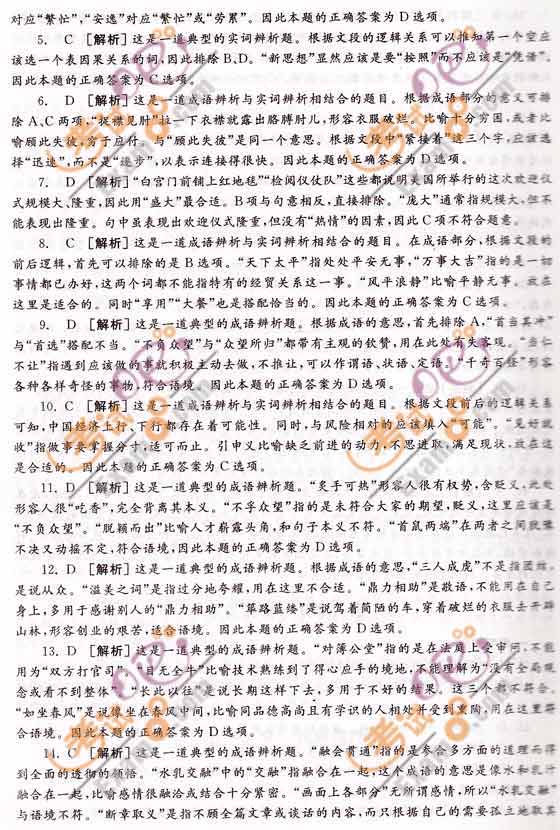 对应“繁忙”,“安逸”对应“繁忙”或“劳累”。因此本题的正确答案为D选项。
5. C [解析]这是一道典型的实词辨析题。根据文段的逻辑关系可以推知第一个空应
该选一个表因果关系的词,因此排除B、D。“新思想”显然应该是要“按照”而不应该是“凭借”。
因此本题的正确答案为C选项。
6. D [解析]这是一道成语辨析与实词辨析相结合的题目。根据成语部分的意义可排
除A、C两项,“捉襟见肘”拉一下衣襟就露出胳膊肘儿,形容衣服破烂。比喻十分穷困,或者比
喻顾此失彼,穷于应付。与“顾此失彼”是同一个意思。根据文段中“紧接着”这三个字,应该选
择“迅速”,而不是“逐步”,以表示连接得很快。因此本题的正确答案为D选项。
7. D [解析]“白宫门前铺上红地毯”“检阅仪仗队”这些都说明美国所举行的这次欢迎仪
式规模大、隆重,因此用“盛大”最合适。B项与句意相反,直接排除。“庞大”通常指规模大,但不
能表现出隆重。句中虽表现出欢迎仪式隆重,但没有“热情”的因素,因此C项不符合题意。
8. C [解析]这是一道成语辨析与实词辨析相结合的题目。在成语部分,根据文段的
前后逻辑,首先可以排除的是B选项。“天下太平”指处处平安无事,“万事大吉”指的是一切
事情都已办好,这两个词都不能指特有的经贸关系这一事。“风平浪静”比喻平静无事。放在
这里是适合的。同时“享用”“大餐”也是搭配恰当的。因此本题的正确答案为C选项。
9. D [解析]这是一道典型的成语辨析题。根据成语的意思,首先排除A,“首当其冲”
与“首选”搭配不当。“不负众望”与“众望所归”都带有主观的钦赞,用在此处有失客观。“当仁
不让”指遇到应该做的事就积极主动去做,不推让,可以作谓语、状语、定语。“千奇百怪”形容
各种各样奇怪的事物,符合语境。因此本题的正确答案为D选项。
10. C [解析]这是一道成语辨析与实词辨析相结合的题目。根据文段前后的逻辑关系
可知,中国经济上行、下行都存在着可能性。同时,与风险相对的应该填入“可能”。“见好就
收”指做事要掌握分寸,适可而止。引申义比喻缺乏前进的动力,不思进取,满足现状,放在这
是合适的。因此本题的正确答案为C选项。
11. D [解析]这是一道典型的成语辨析题。“炙手可热”形容人很有权势,含贬义,此处
形容人很“吃香”,完全背离其本义。“不孚众望”指的是未符合大家的期望,贬义,这里应该是
“不负众望”。“脱颖而出”比喻人才崭露头角,和句子本义不符。“首鼠两端”在两者之间犹豫
不决又动摇不定,符合语境,因此本题的正确答案为D选项。
12. D [解析]这是一道典型的成语辨析题。根据成语的意思,“三人成虎”不是指团结,
是说从众。“溢美之词”是指过分地夸耀,用在这里不合适。“鼎力相助”是敬语,不能用在自己
身上,多用于感谢别人的“鼎力相助”。“筚路蓝缕”是说驾着简陋的车,穿着破烂的衣服去开辟
山林,形容创业的艰苦,适合语境。因此本题的正确答案为D选项。
13. D [解析]这是一道典型的成语辨析题。“对簿公堂”指的是在法庭上受审问,不能
用为“双方打官司”,“目无全牛”比喻技术熟练到了得心应手的境地,不能理解为“没有全局观
念或看不到整体”。“长此以往”是说长期这样下去,多用于不好的结果。这三个都不符合。
“如坐春风”是说像坐在春风中间,比喻同品德高尚且有学识的人相处并受到熏陶,用在这里符
合语境。因此本题的正确答案为D选项。
14. C [解析]这是一道典型的成语辨析题。“融会贯通”指的是参合多方面的道理而得
到全面的透彻的领悟。“水乳交融”中的“交融”指融合在一起,这个成语的意思是像水和乳汁
融合在一起,比喻感情很融洽或结合十分紧密。“画面上各部分”无所谓感情,所以“水乳交融”
与语境不符。“断章取义”是指不顾全篇文章或谈话的内容,而只根据自己的需要孤立地取其